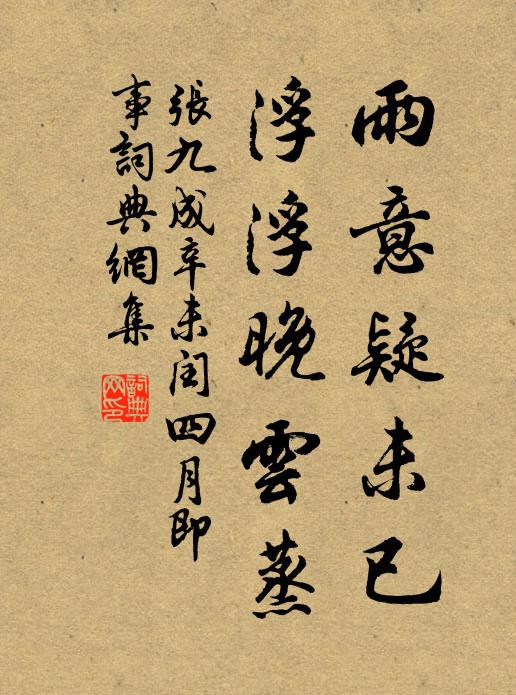 雨意疑未已
浮浮晚雲蒸
張九成辛未閏四月即
事詞典網集
詞典網印